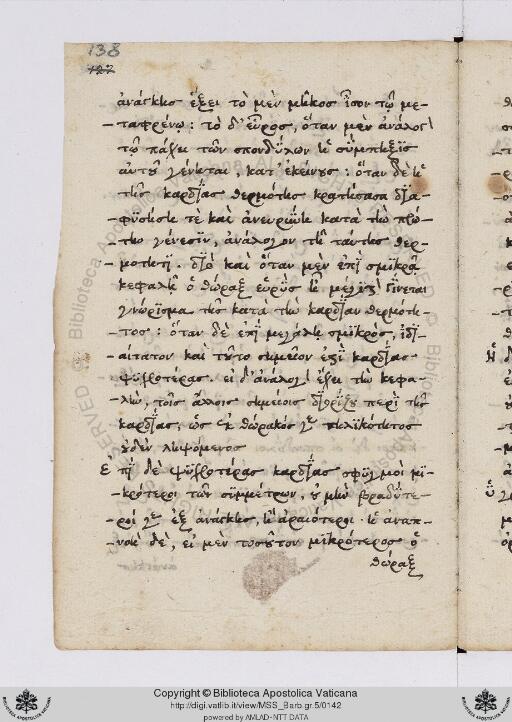 138
127
ἀνάγκης ἕξει τὸ μὲν μῆκος ἴσον τῷ με-
-ταφρένῳ: τὸ δ' εὖρος, ὅταν μὲν ἀνάλογ
τῷ πάχει τῶν σπονδύλων καὶ σύμπηξις
αὐτοῦ γένηται, κατ' ἐκείνους: ὅταν δὲ καὶ
τῆς καρδίας θερμότης κρατήσασα δια-
-φυσήση τὲ καὶ ἀνευρύνη κατὰ τὴν πρώ-
-την γένεσιν, ἀνάλογον τῇ ταύτης θερ-
-μότητι. διὸ καὶ ὅταν μὲν ἐπὶ σμικρᾷ
κεφαλῇ ὁ θώραξ εὐρὺς καὶ μέγας γίνεται
γνώρισμα τῆς κατὰ τὴν καρδίαν θερμότη-
-τος: ὅταν δὲ ἐπὶ μεγάλῃ σμικρὸς, ἰδι-
-αίτατον καὶ τοῦτο σημεῖον ἐστὶ καρδίας
ψυχροτέρας. εἰ δ' ἀνάλογ ἔχει τὴν κεφα-
-λὴν, τοῖς ἄλλοις σημείοις διορίζου περὶ τῆς
καρδίας, ὡς ἐκ θώρακός γε τηλικότητος
οὐδὲν ληψόμενος
Ἐπὶ δὲ ψυχροτέρας καρδίας σφυγμοὶ μι-
-κρότεροι τῶν συμμέτρων, οὐ μὴν βραδύτε-
-ροί γε ἐξ ἀνάγκης, καὶ ἀραιότεροι. καὶ ἀναπ-
-νοὴ δὲ, εἰ μὲν τοσοῦτον μικρότερος ὁ
θώραξ
Copyright © Biblioteca Apostolica Vaticana
http://digi.vatlib.it/view/MSS_Barb.gr.5/0142
powered by AMLAD-NTT DATA